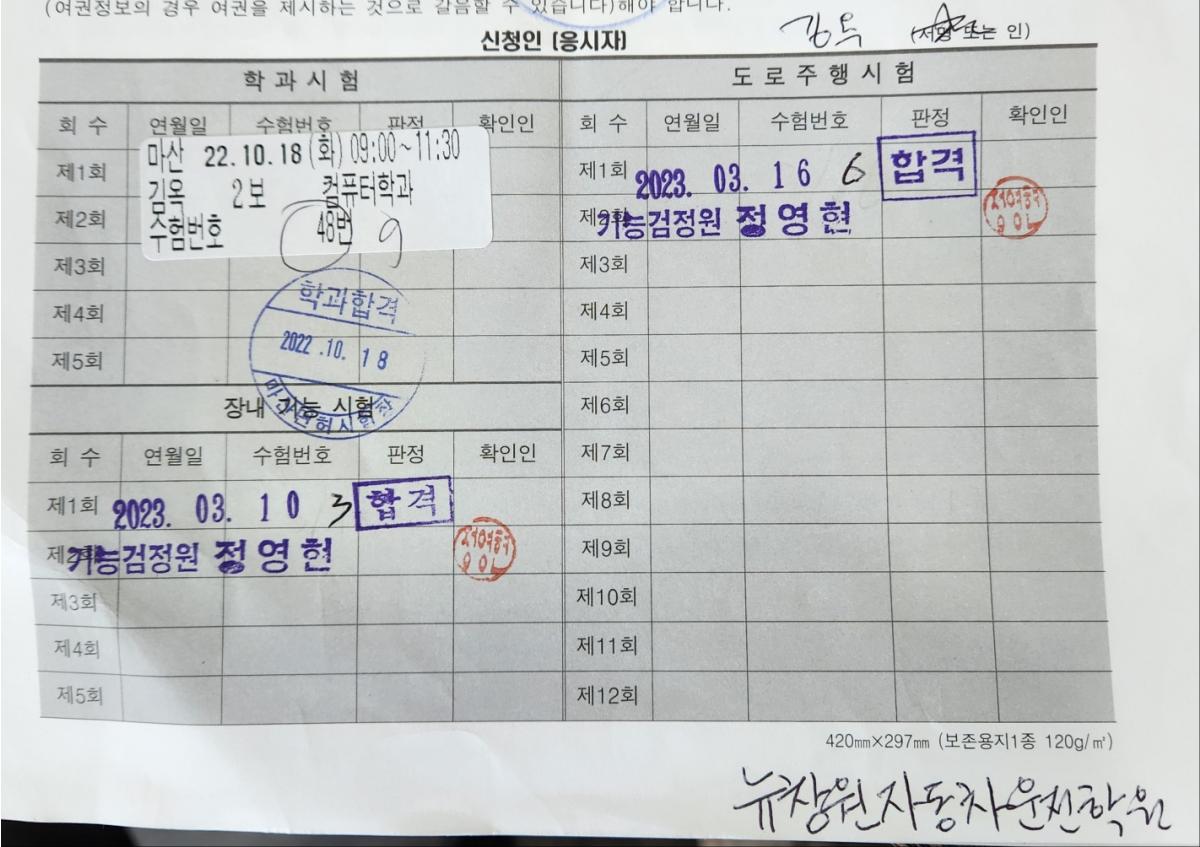 (여권정보의 경우 여권을 제시하는 것으로 갈음할 수 있습니다)해야 합니다.
신청인 (응시자) 김옥 (서명 또는 인)
학과시험
회 수 연월일 수험번호 판정 확인인
제1회
제2회
제3회
제4회
제5회
마산 22.10.18 (화) 09:00~11:30
김옥 2보 컴퓨터학과
수험번호 48번 9
학과합격
2022.10.18
마산면허시험장
장내 기능 시험
회 수 연월일 수험번호 판정 확인인
제1회 2023. 03. 10 3 합격
기능검정원 정영현
제3회
제4회
제5회
도로주행시험
회 수 연월일 수험번호 판정 확인인
제1회 2023. 03. 16 6 합격
기능검정원 정영현
제3회
제4회
제5회
제6회
제7회
제8회
제9회
제10회
제11회
제12회
420㎜×297㎜ (보존용지1종 120g/㎡)
뉴창원자동차운전학원